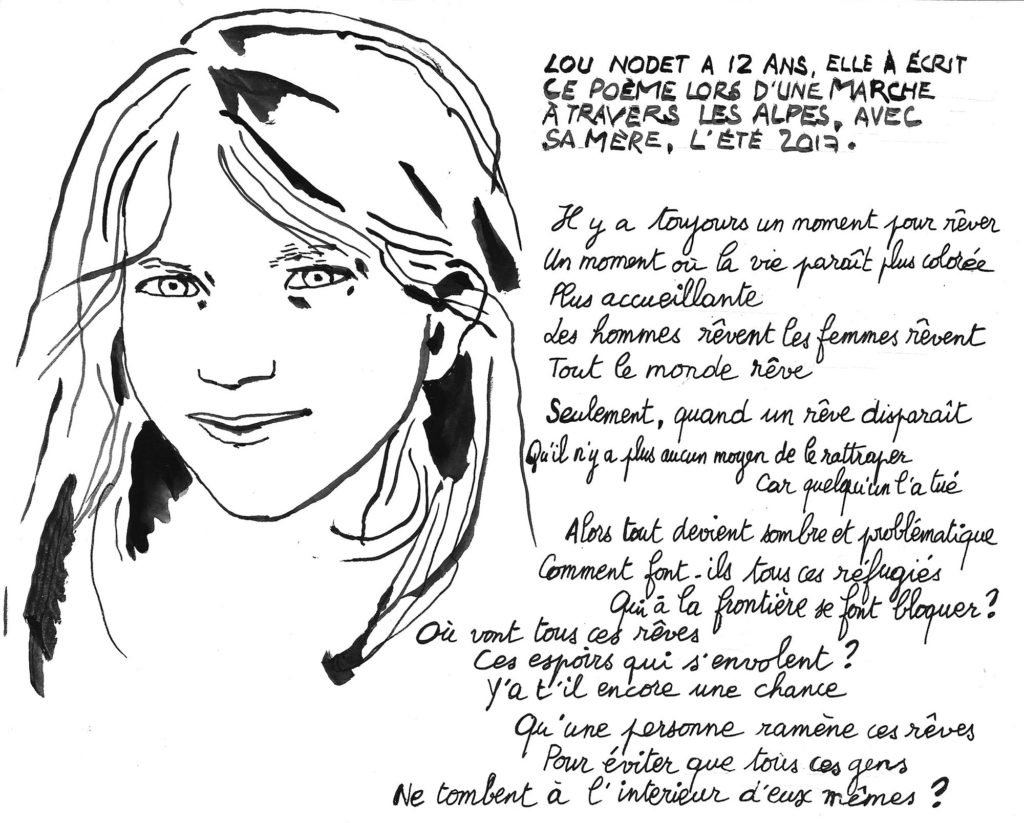 LOU NODET A 12 ANS, ELLE À ÉCRIT
CE POÈME LORS D'UNE MARCHE
À TRAVERS LES ALPES, AVEC
SA MÈRE, L'ÉTÉ 2017.
Il y a toujours un moment pour rêver
Un moment où la vie paraît plus colorée
Plus accueillante
Les hommes rêvent les femmes rêvent
Tout le monde rêve
Seulement, quand un rêve disparaît
Qu'il n'y a plus aucun moyen de le rattraper
Car quelqu'un l'a tué
Alors tout devient sombre et problématique
Comment font-ils tous ces réfugiés
Qui à la frontière se font bloquer?
Où vont tous ces rêves
Ces espoirs qui s'envolent?
Y'a t'il encore une chance
Qu'une personne ramène ces rêves
Pour éviter que tous ces gens
Ne tombent à l'interieur d'eux mêmes?